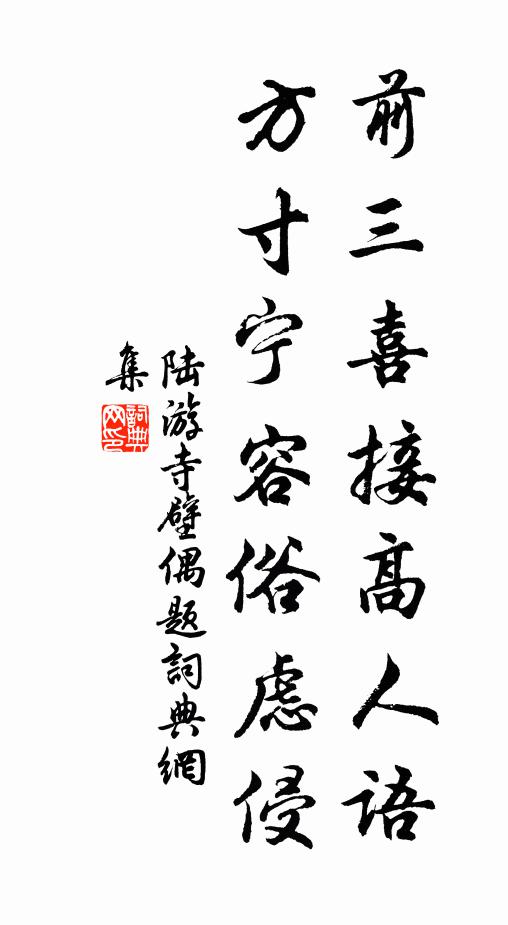 前三喜接高人语
方寸宁容俗虑侵
陆游寺壁偶题詞典網
集
詞典
网印